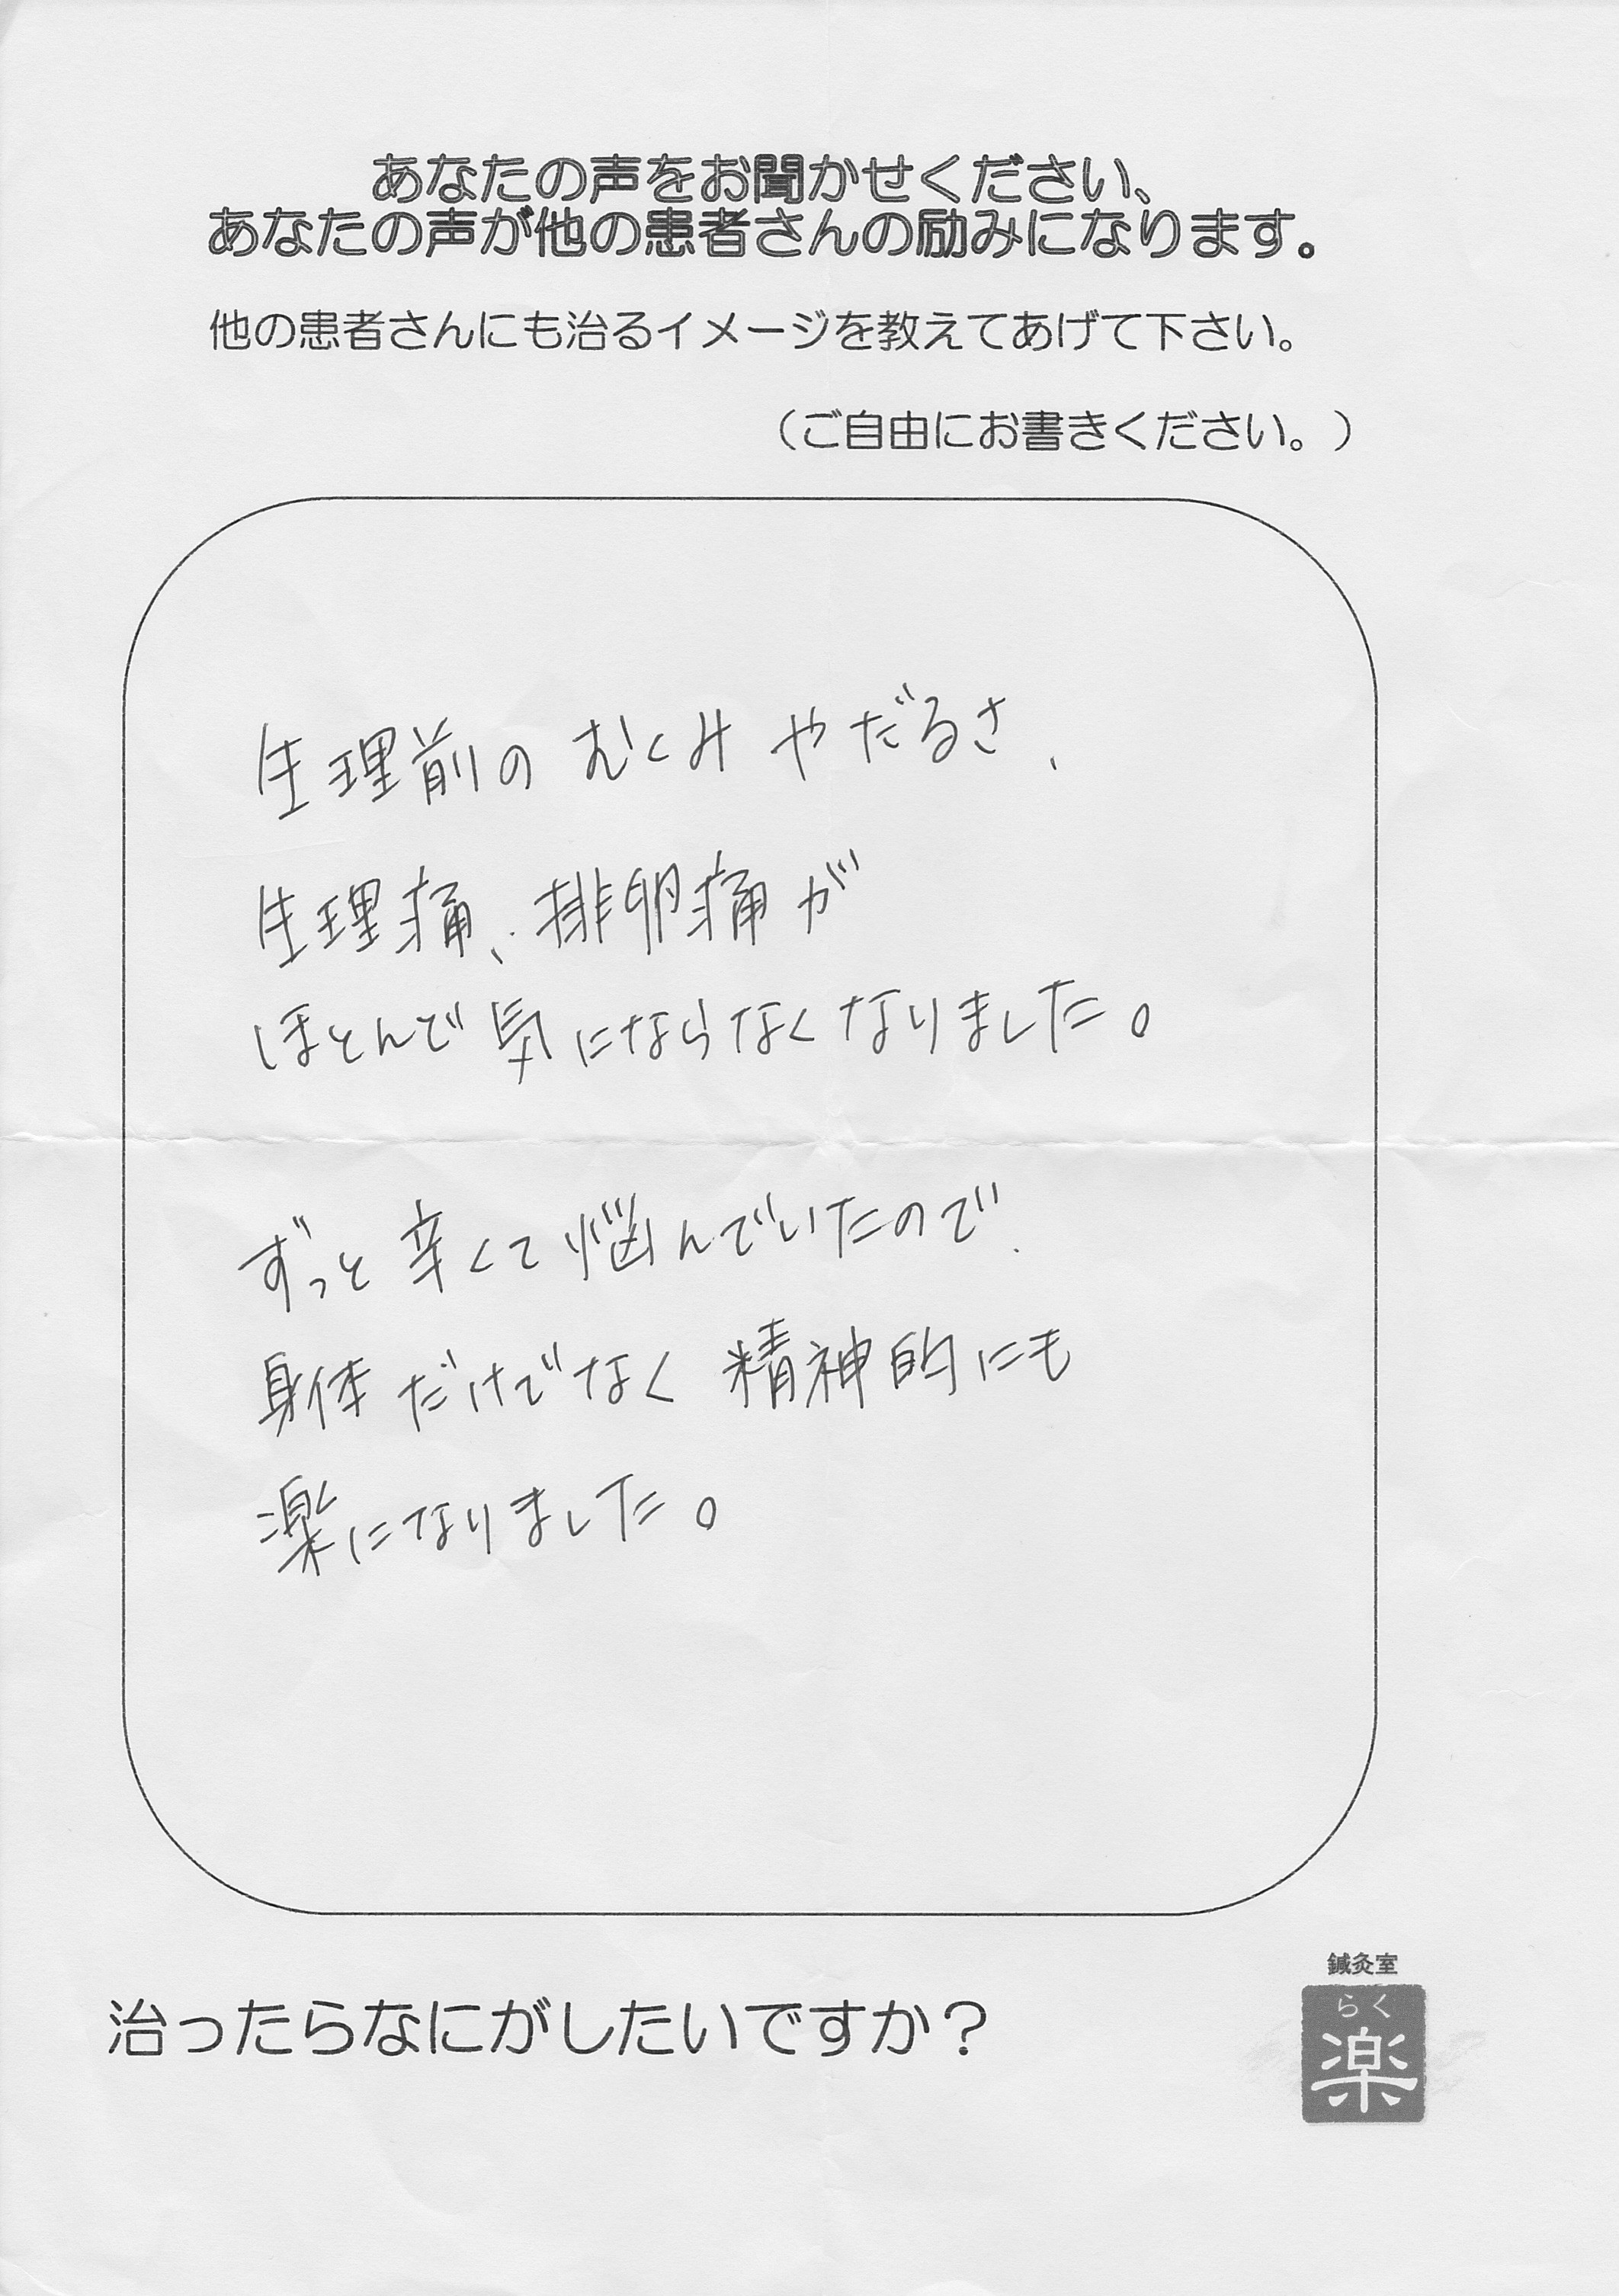 あなたの声をお聞かせください、
あなたの声が他の患者さんの励みになります。
他の患者さんにも治るイメージを教えてあげて下さい。
（ご自由にお書きください。）
生理前の むくみ やだるさ、
生理痛、排卵痛が
ほとんど気にならなくなりました。
ずっと辛くて悩んでいたので、
身体だけでなく 精神的にも
楽になりました。
治ったらなにがしたいですか？
鍼灸室
らく
楽